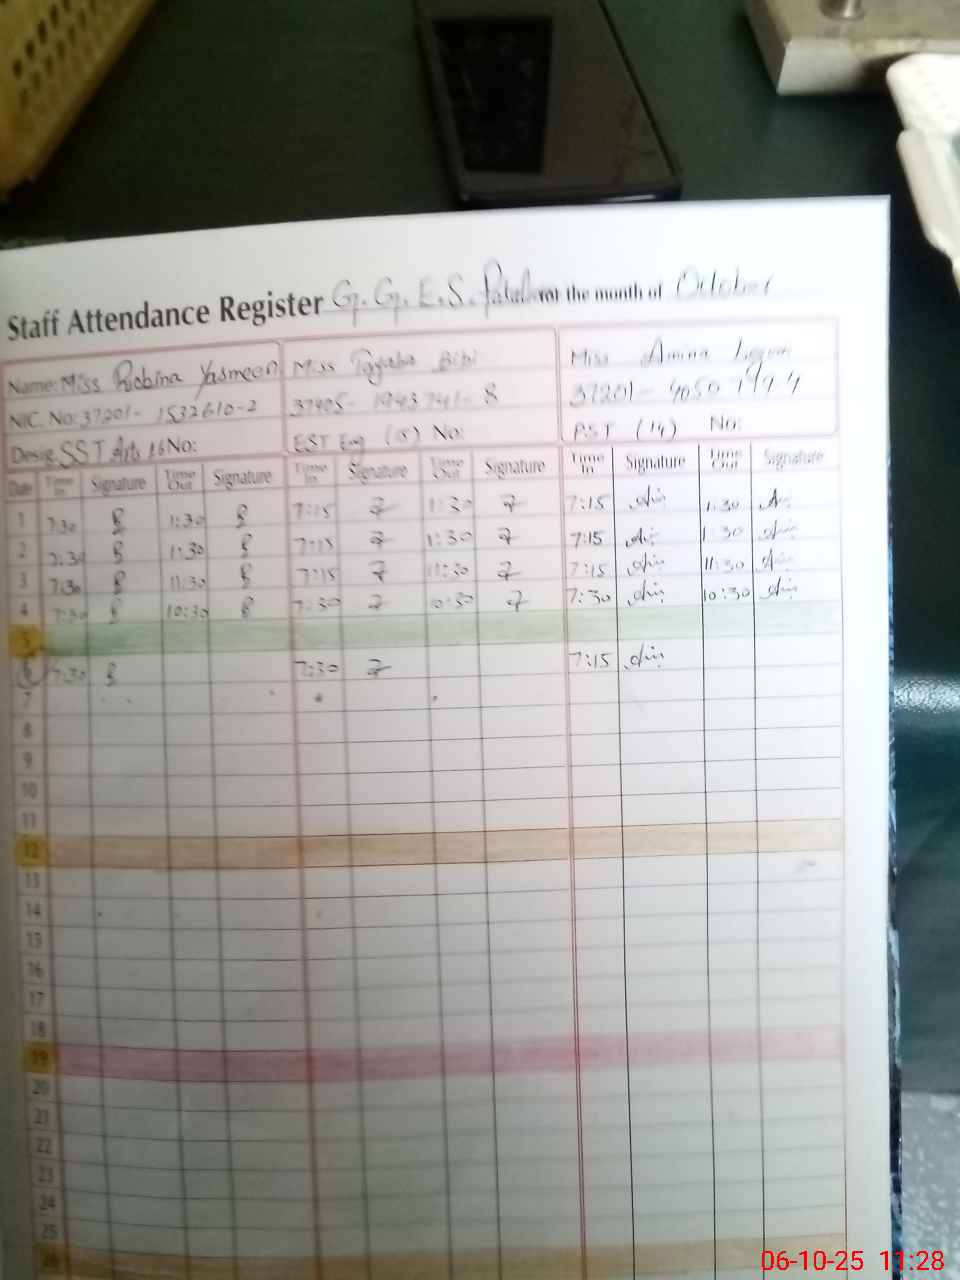 Staff Attendance Register G.G.E.S. for the month of October
Name: Miss Robina Yasmeen Miss Tayaba Bibi Miss Amina
NIC. No: 37201- 1532610-2 37405- 1943741- 8 37201-
Desig. SST Arts 16 No: EST Eng (15) No: PST (14) No:
Date Time In Signature Time Out Signature Time In Signature Time Out Signature Time In Signature Time Out Signature
1 7:30 1:30 7:15 1:30 7:15 1:30
2 7:30 1:30 7:15 1:30 7:15 1:30
3 7:30 11:30 7:15 11:30 7:15 11:30
4 7:30 10:30 7:30 10:30 7:30 10:30
5
6 7:30 7:30 7:15
7
8
9
10
11
12
13
14
15
16
17
18
19
20
21
22
23
24
25
26
06-10-25 11:28